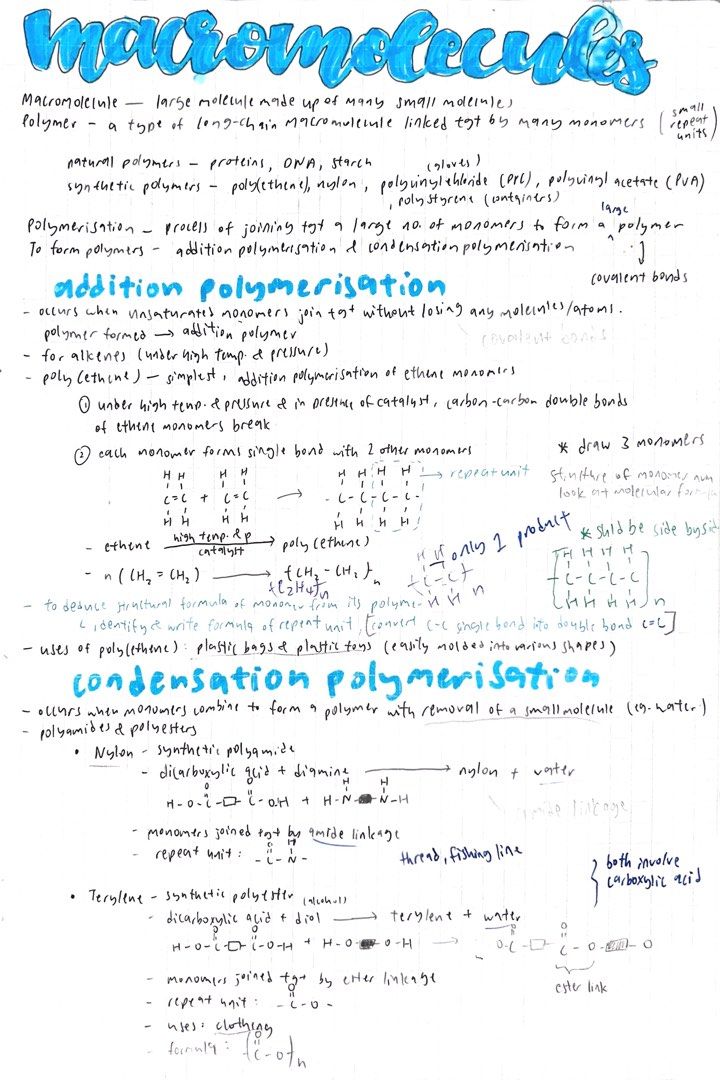 macromolecules
Macromolecule — large molecule made up of many small molecules
Polymer – a type of long-chain macromolecule linked tgt by many monomers (small repeat units)
natural polymers – proteins, DNA, starch
(gloves)
synthetic polymers – poly(ethene), nylon, polyvinylchloride (PVC), polyvinyl acetate (PVA)
, polystyrene (containers)
Polymerisation – process of joining tgt a large no. of monomers to form a large polymer
To form polymers – addition polymerisation & condensation polymerisation
covalent bonds
addition polymerisation
- occurs when unsaturated monomers join tgt without losing any molecules/atoms.
polymer formed → addition polymer
covalent bonds
- for alkenes (under high temp. & pressure)
- poly(ethene) – simplest, addition polymerisation of ethene monomers
① under high temp. & pressure & in presence of catalyst, carbon-carbon double bonds
of ethene monomers break
② each monomer forms single bond with 2 other monomers
* draw 3 monomers
H H H H H H H H
C=C + C=C → -C-C-C-C-
H H H H H H H H
→ repeat unit
structure of monomer
look at molecular
- ethene high temp. & p catalyst → poly(ethene)
only 1 product
* shld be side by side
- n(CH2=CH2) → {CH2-CH2}n
{C2H4}n
H H
-C-C-
H H n
H H H H
-C-C-C-C-
H H H H n
- to deduce structural formula of monomer from its polymer
↳ identify & write formula of repeat unit, [convert C-C single bond into double bond C=C]
- uses of poly(ethene): plastic bags & plastic toys (easily molded into various shapes)
condensation polymerisation
- occurs when monomers combine to form a polymer with removal of a small molecule (eg. water)
- polyamides & polyesters
• Nylon – synthetic polyamide
- dicarboxylic acid + diamine → nylon + water
O O H H
H-O-C-□-C-OH + H-N-■-N-H
amide linkage
- monomers joined tgt by amide linkage
O H
- repeat unit: -C-N-
thread, fishing line
both involve
carboxylic acid
• Terylene – synthetic polyester
(alcohol)
- dicarboxylic acid + diol → terylene + water
O O O O
H-O-C-□-C-O-H + H-O-■-O-H → O-C-□-C-O-▨-O
ester link
- monomers joined tgt by ester linkage
O
- repeat unit: -C-O-
- uses: clothing
- formula: {C-O}n
O